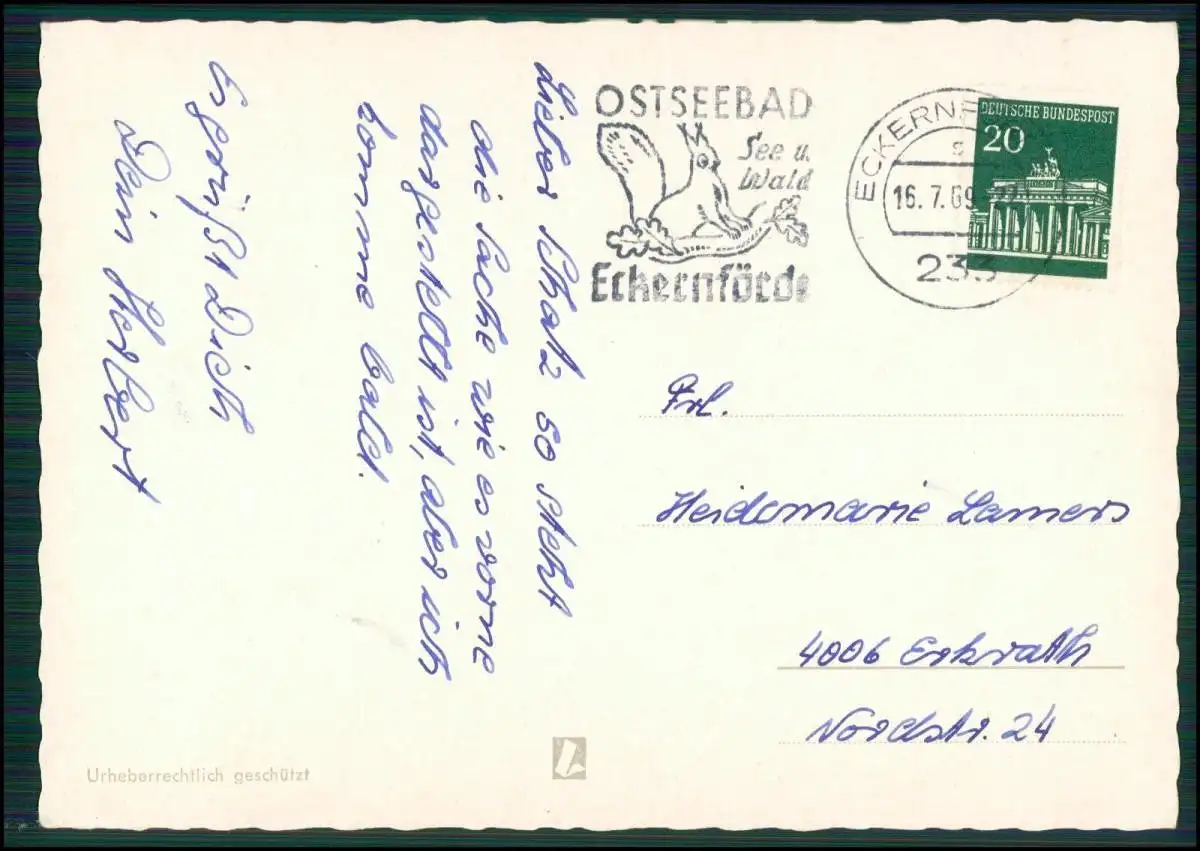 OSTSEEBAD
See u.
Wald
Eckernförde
ECKERNF
16.7.69
233
DEUTSCHE BUNDESPOST
20
Lieber Schatz so steht
die Sache wie es vorne
dargestellt ist, aber ich
komme bald.
Es grüßt Dich
Dein Herbert
Frl.
Heidemarie Lamers
4006 Erkrath
Nordstr. 24
Urheberrechtlich geschützt